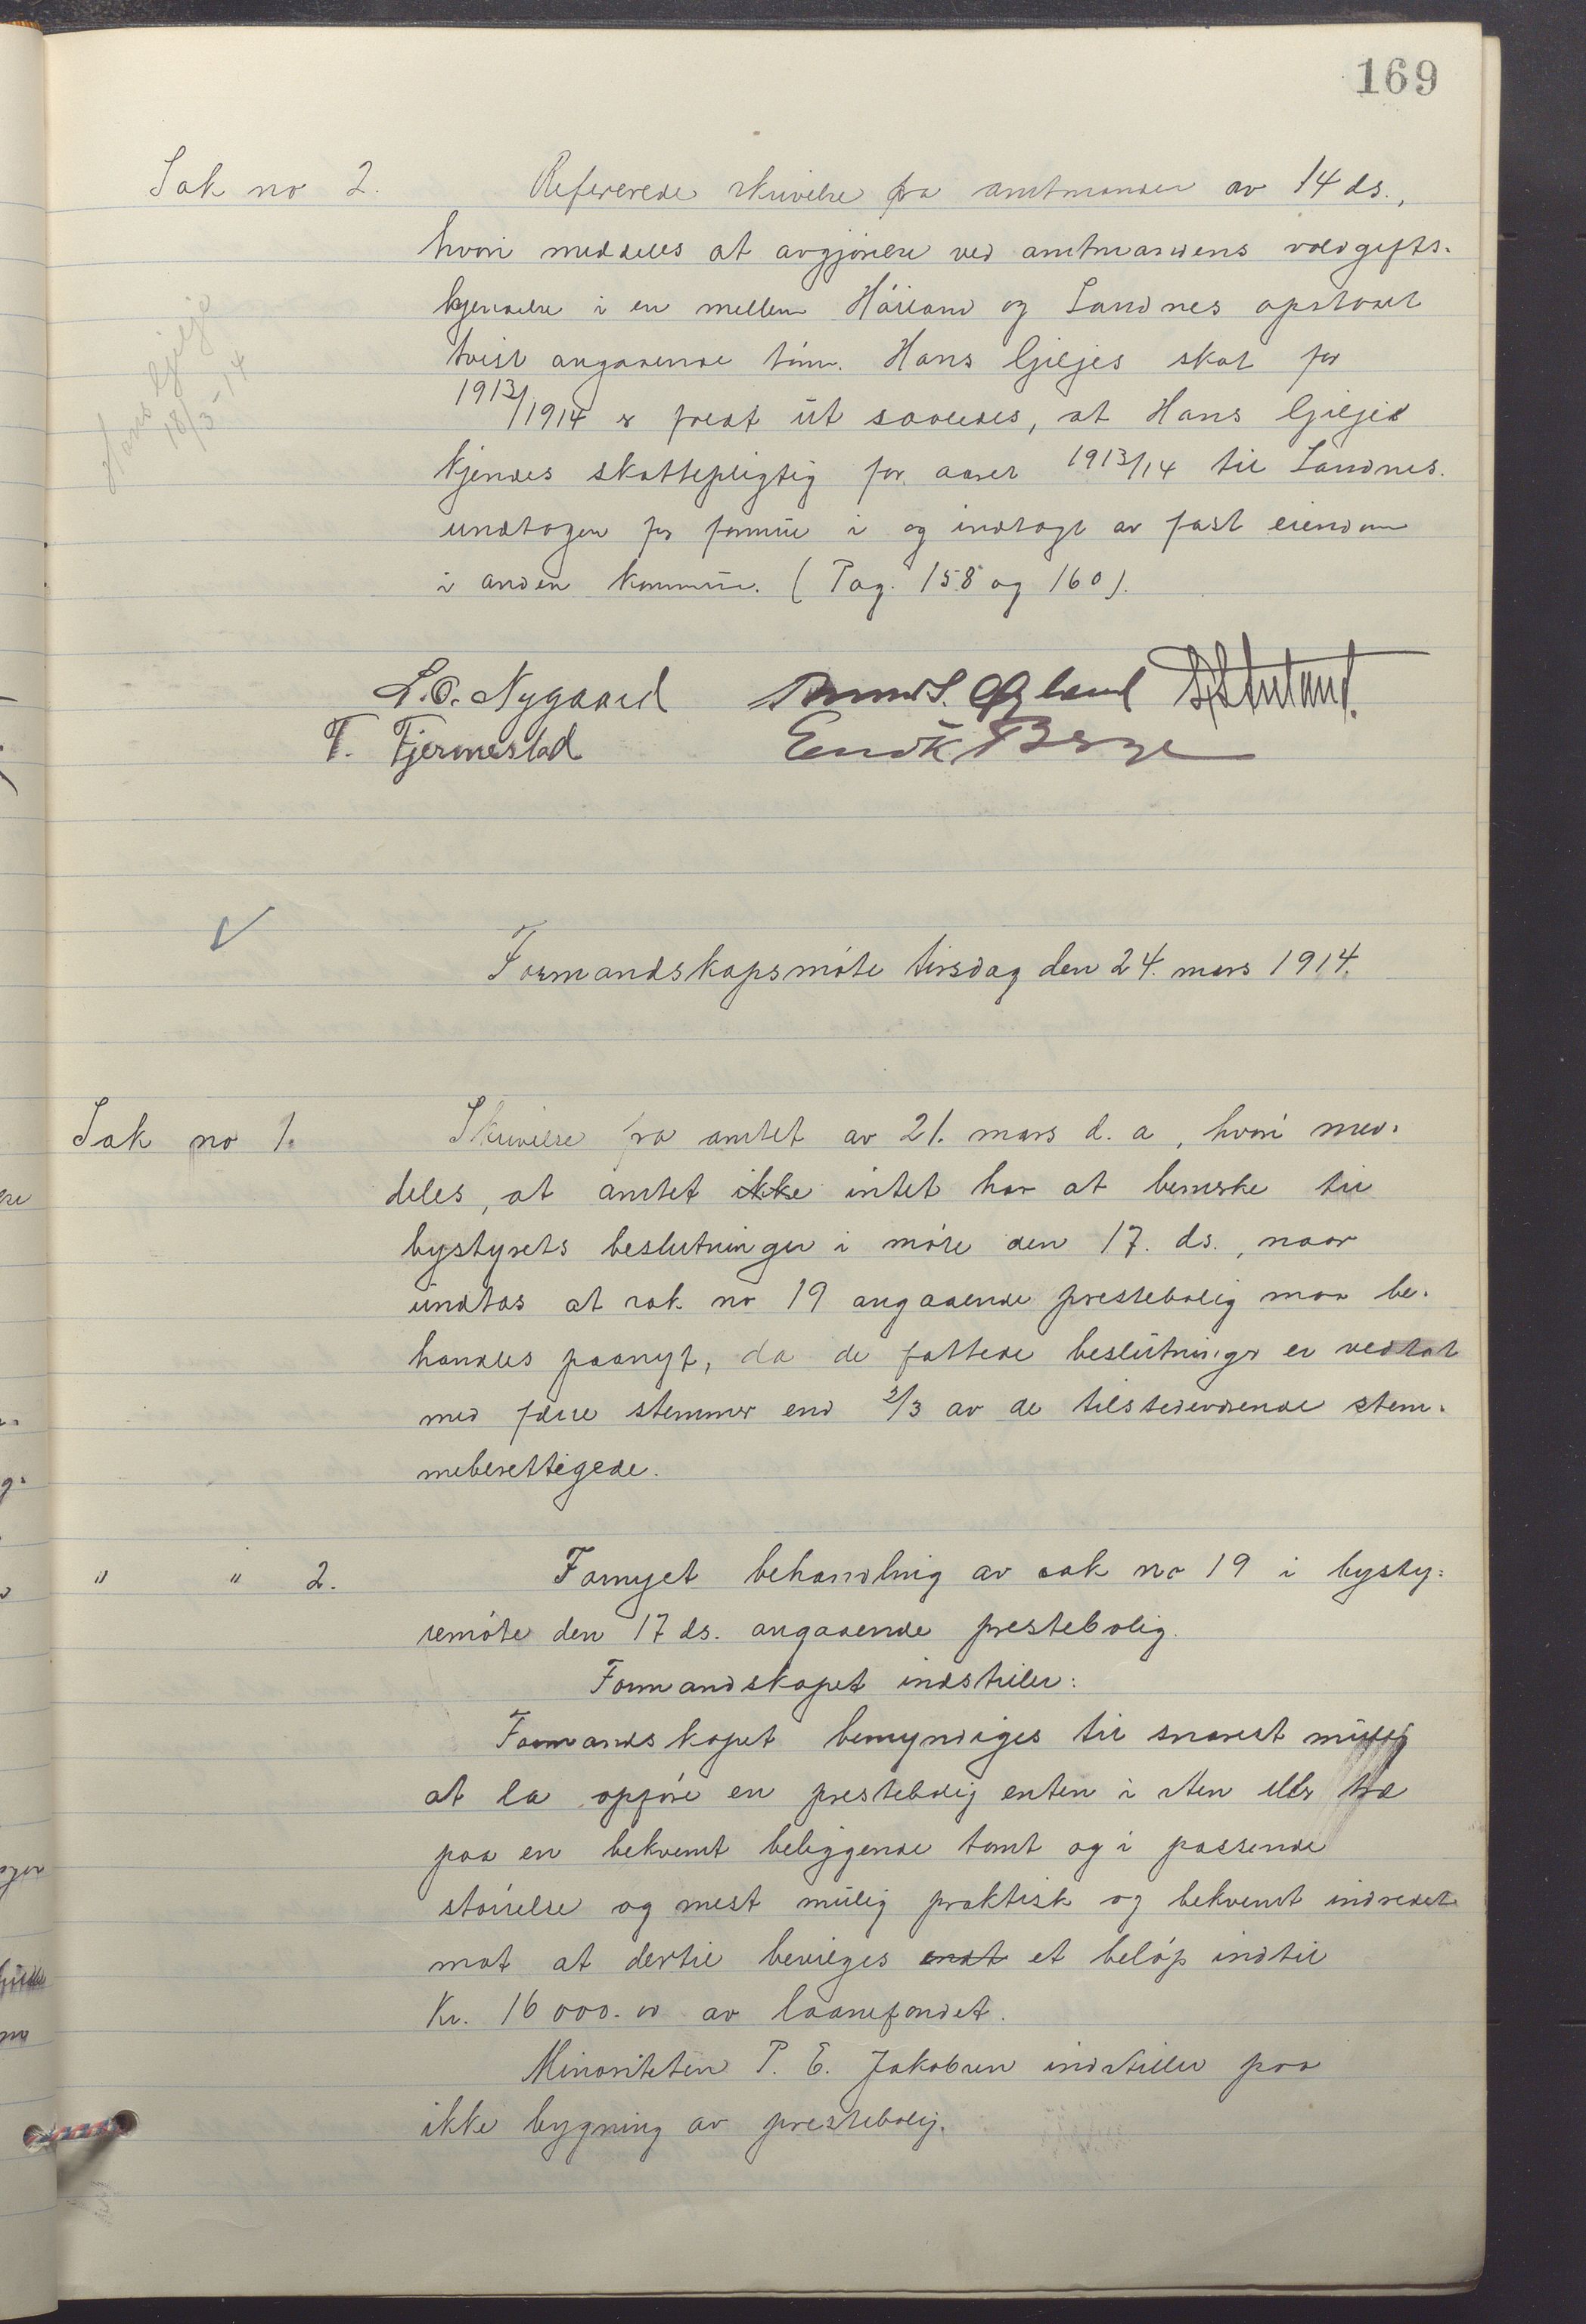 169
Sak no 2. Refererede skrivelse fra amtmanden av 14 ds.,
hvori meddeles at avgjørelse ved amtmandens voldgifts-
kjendelse i en mellem Høiland og Sandnes opstaaet
tvist angaaende tøm. Hans Gjiljes skat for
1913/1914 er faldt ut saaledes, at Hans Gjilje
kjendes skattepligtig for aaret 1913/14 til Sandnes.
undtagen for formue i og indtægt av fast eiendom
i anden kommune. (Pag. 158 og 160).
Hans Gjilje
18/3-14
L.O. Nygaard Øgland
T. Tjermestad Endr. Berge
Formandskapsmøte tirsdag den 24. mars 1914.
Sak no 1. Skrivelse fra amtet av 21. mars d.a, hvori med-
deles, at amtet ikke intet har at bemerke til
bystyrets beslutninger i møte den 17. ds., naar
undtas at sak no 19 angaaende prestebolig maa be-
handles paanyt, da de fattede beslutninger er vedtat
med færre stemmer end 2/3 av de tilstedeværende stem-
meberettigede.
" " 2. Fornyet behandling av sak no 19 i bysty=
remøte den 17 ds. angaaende prestebolig.
Formandskapet indstiller:
Formandskapet bemyndiges til snarest mulig
at la opføre en prestebolig enten i sten eller træ
paa en bekvemt beliggende tomt og i passende
størrelse og mest mulig praktisk og bekvemt indredet
mot at dertil bevilges et beløp indtil
Kr. 16 000.00 av laanefondet.
Minoriteten P. E. Jakobsen indstiller paa
ikke bygning av prestebolig.